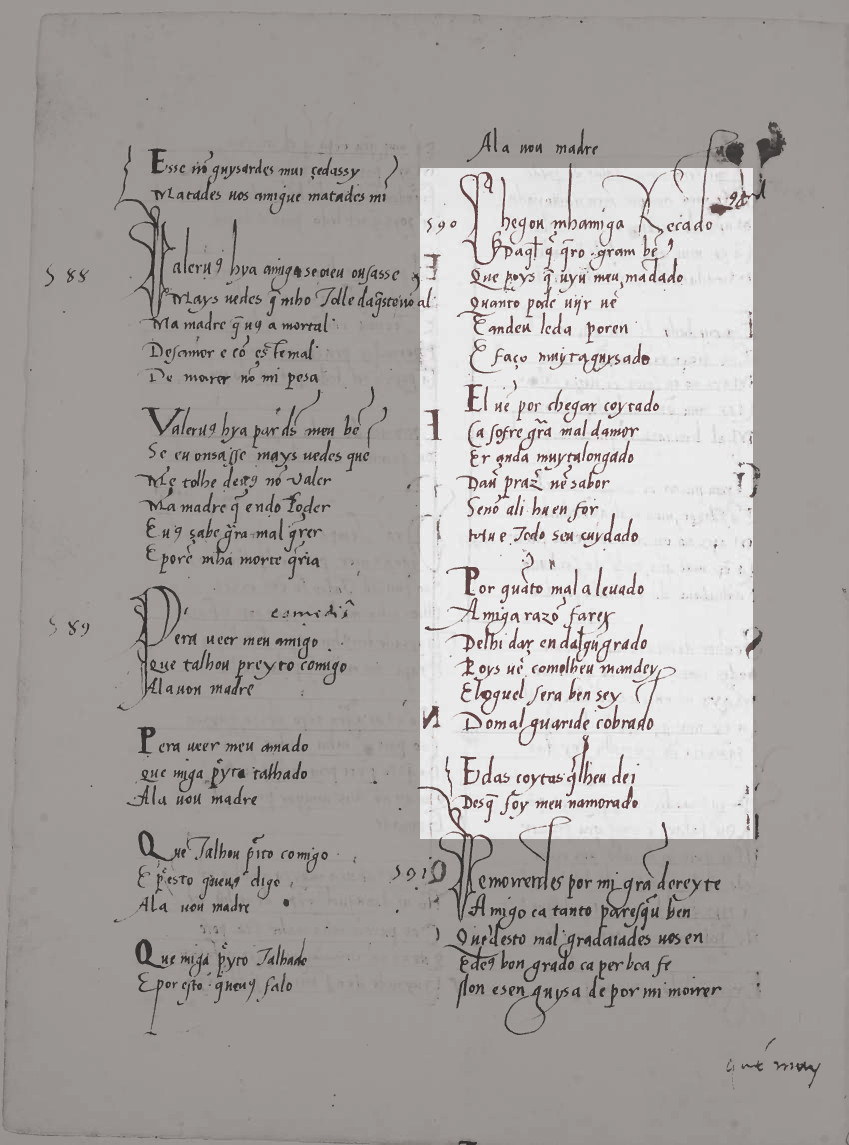 Esse nõ guysardes mui çedassy
Matades uos amigue matades mi
588
Valeru9 hya amiga se oeu ousasse
Mays uedes q̃ mho Tolle daq̃sto nõ al
Ma madre q̃ u9 a mortal
Desamor e cõ este mal
De morrer nõ mi pesa
Valeru9 hya par ds meu bẽ
Se eu ousasse mays uedes que
Me tolhe de u9 nõ ualer
Ma madre q̃ endo Poder
E u9 sabe grã mal q̃rer
E porẽ mha morte q̃ria
589
Pera ueer meu amigo
Que talhou preyto comigo
Ala uou madre
Pera ueer meu amado
Que miga pyto talhado
Ala uou madre
Que Talhou pito comigo
E pesto queu9 digo
Ala uou madre
Que miga pyto Talhado
E por esto queu9 falo
Ala uou madre
590
Chegou mhamiga Recado
Daql q̃ q̃ro gram bẽ
Que poys q̃ uyu meu mãdado
Quanto pode uijr uẽ
E andeu leda poren
E faço muyt aguysado
El uẽ por chegar coytado
Ca sofre grã mal damor
Er anda muytalongado
Dau praz nẽ sabor
Senõ ali hu en for
Hu e Todo seu cuydado
Por quãto mal a leuado
Amiga razõ farey
Delhi dar en dalgũ grado
Poys uẽ comolheu mandey
El loguel sera ben sey
Do mal guaride cobrado
E das coytas q̃lheu dei
Desq̃ foy meu namorado
591
Remorrerdes por mi grã dereyte
Amigo ca tanto paresqu ben
Que desto mal grad aiades uos en
E de9 bon grado ca per bõa fe
Non e sen guysa de por mi morrer
que moy